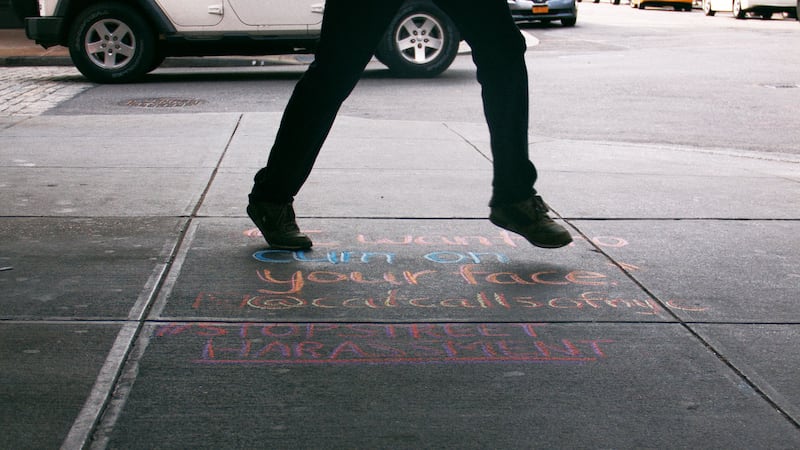 "I want to
cum on
your face"
@catcallsofnyc
#STOPSTREET
HARASSMENT